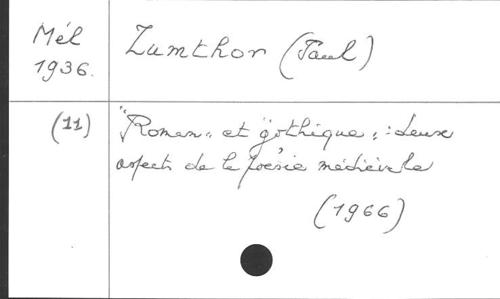 Mél
1936.
Zumthor (Paul)
(11)
"Roman" et "gothique" : deux
aspects de la poésie médiévale
(1966)